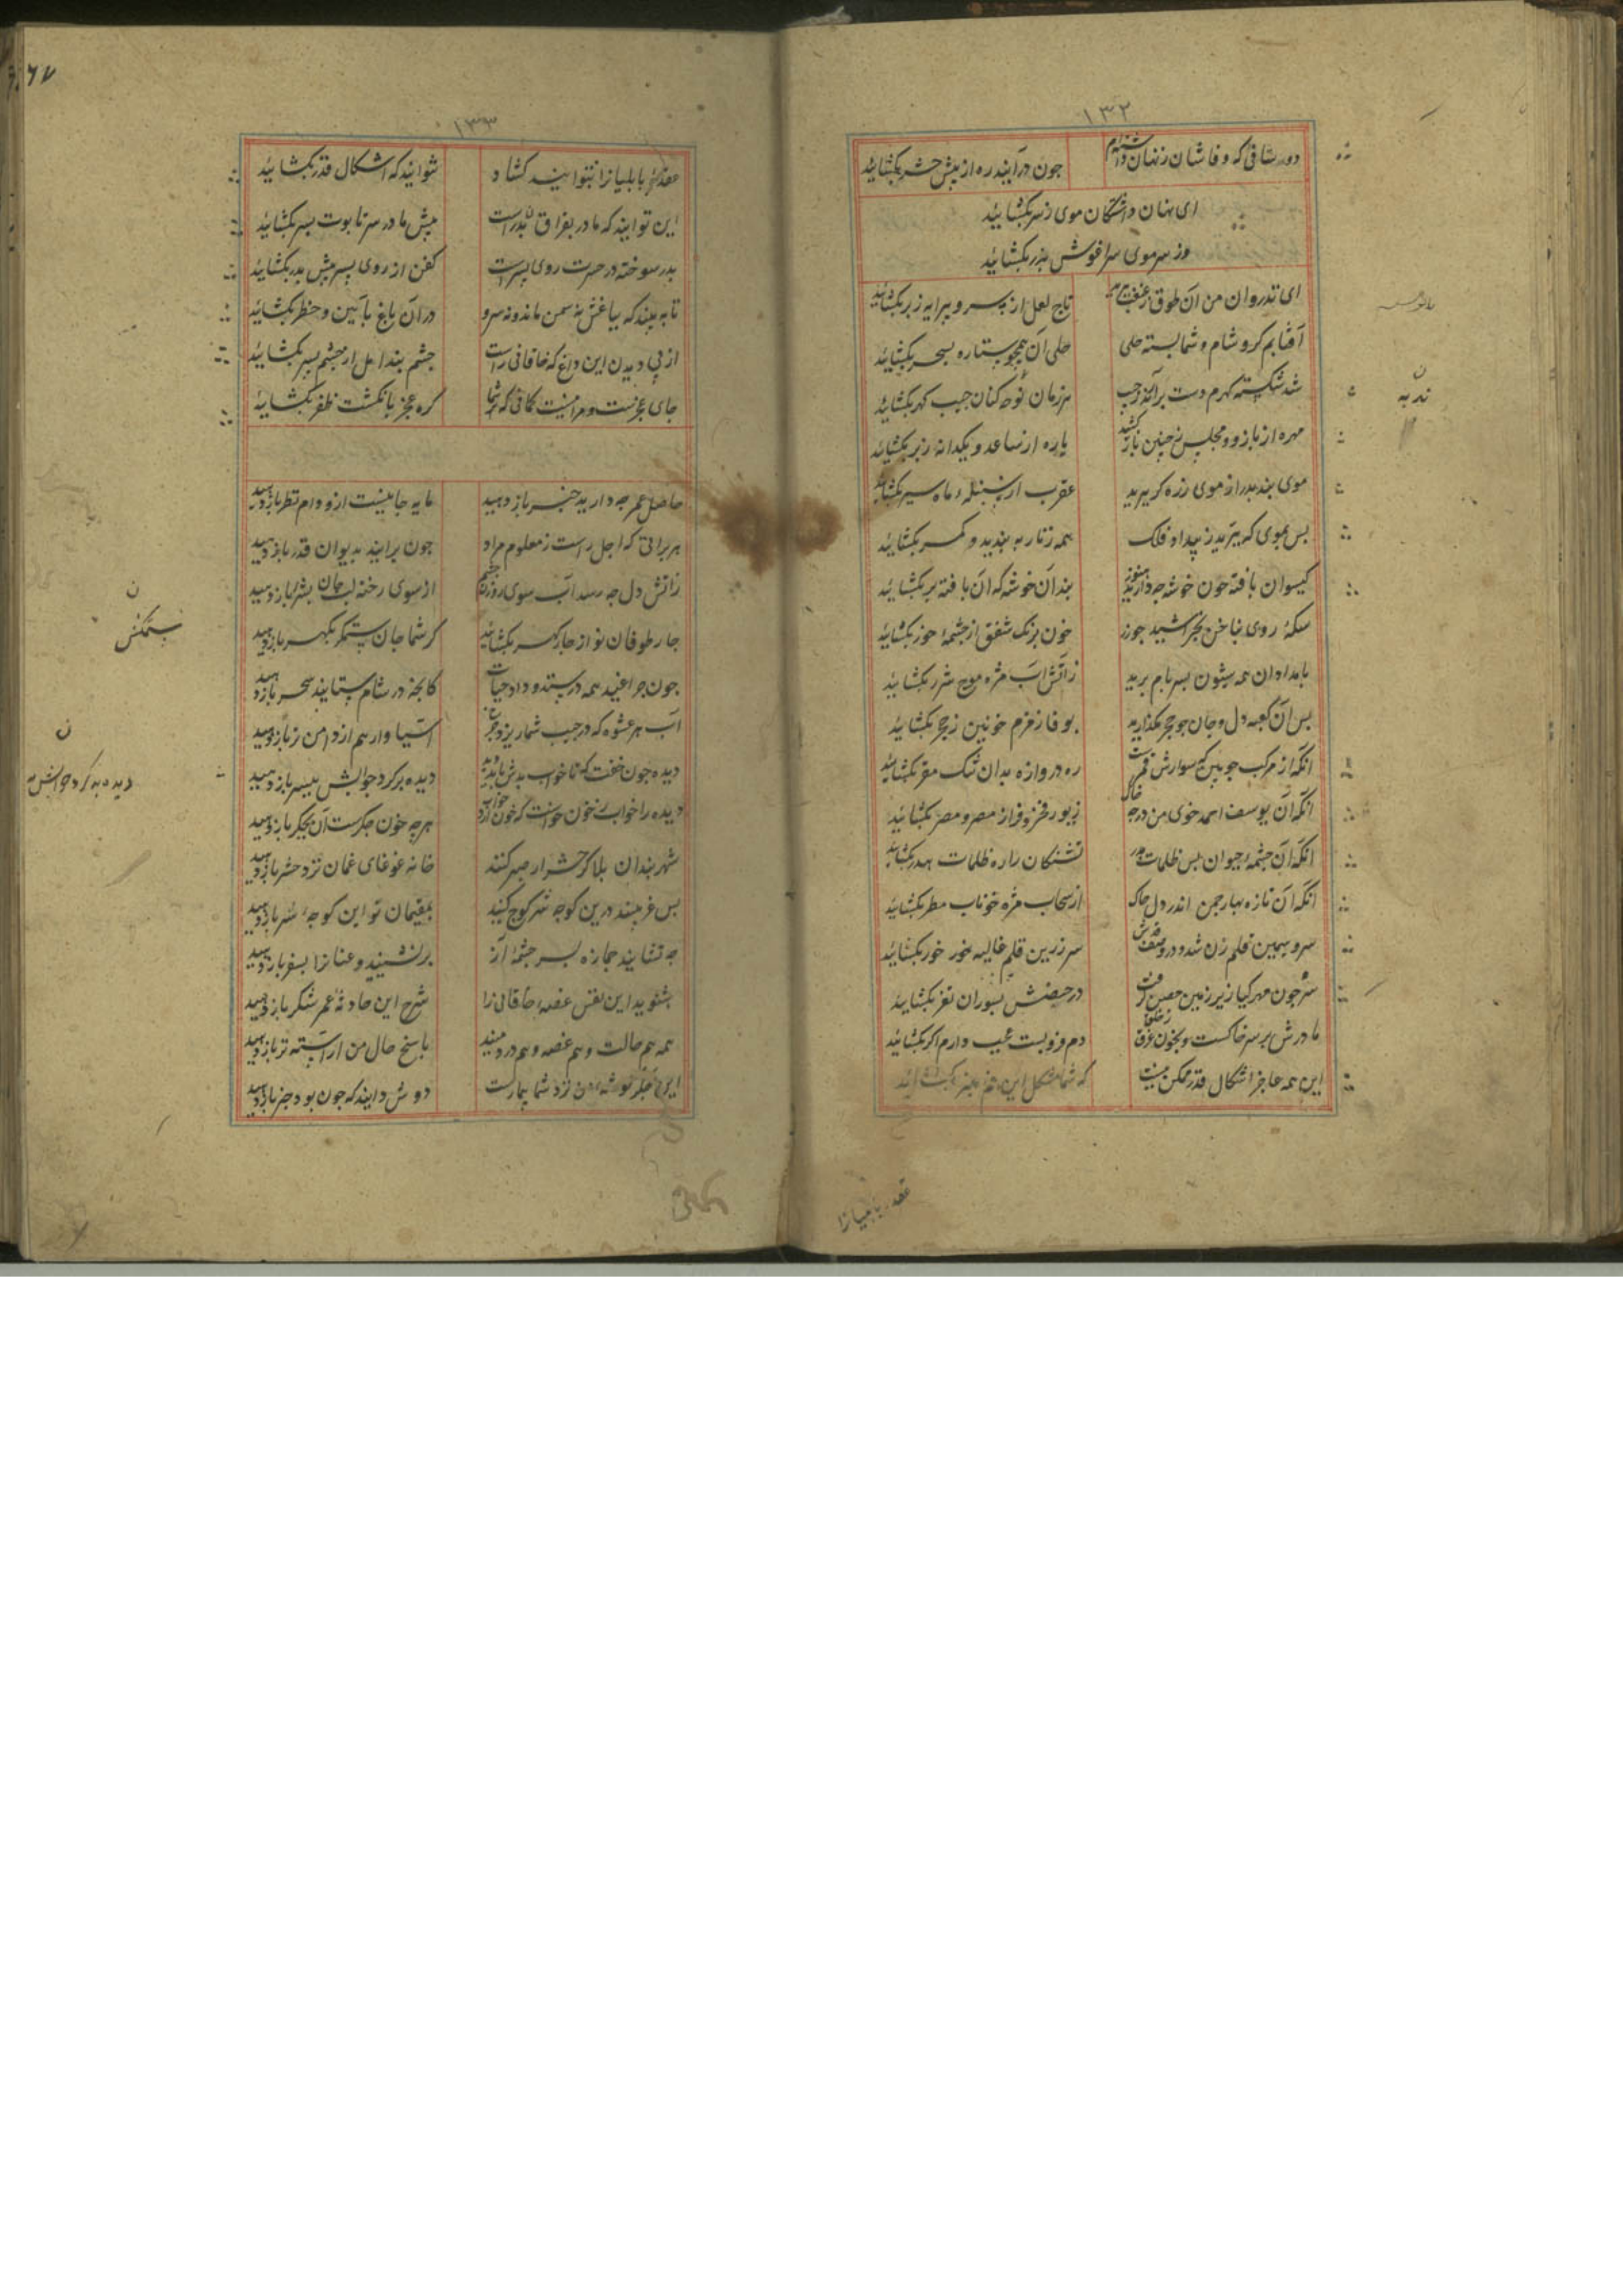 ۱۳۲
دوستانی که وفاشان ز نهان داشته‌ام	چون درآیند ره از پیش حشر بکشائید
ای نهان داشتگان موی ز سر بکشائید
وز سر موی سر اغوش بزر بکشائید
ای تذروان من آن طوق ز غبغب ببرید	تاج لعل از سر و پیرایه ز بر بکشائید
آفتابم کرو شام و شما بسته حلی	حلی آن همچو ستاره بسحر بکشائید
شد شکسته کهرم دست برآرید ز جیب	هر زمان نوحه کنان جیب کهر بکشائید
مهره از بازو و مجلس نه چنین باز کشید	یاره از ساعد و یکدانه ز بر بکشائید
موی بند بزر از موی زره کر ببرید	عقرب از سنبله ماه سپر بکشائید
بس بموی که ببرید ز بیداد فلک	همه زنار به بندید و کمر بکشائید
کیسوان بافته چون خوشه چه دارید هنوز	بند آن خوشه که آن بافته بر بکشائید
سکهٔ روی بناخن بخراشید چو زر	خون برنک شفق از چشمهٔ خور بکشائید
بامدادان همه شیون بسر بام برید	زآتش آب مژه موج شرر بکشائید
بس آن کعبه دل و جان چو حجر بکذارید	بوفا زمزم خونین ز حجر بکشائید
انکه از مرکب چوبین که سوارش قمرست	ره دروازه بدان تنک مقر بکشائید
انکه آن یوسف احمد خوی من در چه خاک	زیور فخر و فر از مصر و مضر بکشائید
انکه آن چشمهٔ حیوان بس ظلمات مدر	تشنکان را ره ظلمات بمدر بکشائید
انکه آن تازه بهار چمن اندر دل خاک	از سحاب مژه خوناب مطر بکشائید
سرو سیمین قلم زن شد و در وصف قدش	سر زرین قلم غالیه خور بکشائید
سر چون مهر کیا زیر زمین حصن کرفت	در حصنش بسوران نغر بکشائید
مادرش بر سر خاکست و بخون غرق ز خلق	دم فرو بست عجب دارم اکر بکشائید
این همه عاجز اشکال قدر ممکن نیست	که شما مشکل این غم بهنر بکشائید
عقده بابلیان را
۱۳۳
عقدهٔ بابلیانرا بتوانید کشاد	نتوانید که اشکال قدر بکشائید
این توانید که مادر بفراق پدرست	پیش مادر سر تابوت پسر بکشائید
پدر سوخته در حسرت روی پسرست	کفن از روی پسر پیش پدر بکشائید
تا به بیند که بباغش نه سمن ماند و نه سرو	در آن باغ بآیین و حظر بکشائید
از پی دیدن این داغ که خاقانی راست	چشم بند امل از چشم بسر بکشائید
جای عجزست و مرا نیست کمانی که شما	کره عجز بانکشت ظفر بکشائید
حاصل عمر چه دارید خبر باز دهید	مایه جانیست ازو وام نظر باز دهید
هر براتی که اجل راست ز معلوم مراد	چون برانید بدیوان قدر باز دهید
زآتش دل چه رسد آب سوی روزن چشم	از سوی رخنه لب جان بشرر باز دهید
چار طوفان نو از چار کهر بکشائید	کر شما جان ستمکر بکهر باز دهید
ستمکش
چون چراغید همه در ستد و داد حیات	کانچه در شام ستانید سحر باز دهید
آب هر عشوه که در جیب شما ریزد چرخ	آسیاوار هم از دامن تر باز دهید
دیده چون خفت که تا خواب بدش باید دید	دیده بد کرد جوابش به پسر باز دهید
دیده را خواب ز خون خواست که خون آرد خواب	هر چه خون جکرست آن بجکر باز دهید
شهربندان بلا کر حشر از صبر کنند	خانه غوغای غمان نزد حشر باز دهید
بس غریبند درین کوچه شر کوچ کنید	بمقیمان تو این کوچهٔ شر باز دهید
چه نشانید جمازه بسر چشمهٔ آز	برنشینید و عنانرا بسفر باز دهید
بشنوید این نفس غصهٔ خاقانی را	شرح این حادثهٔ عمر شکر باز دهید
همه هم حالت و هم غصه و هم درد منید	پاسخ حال من آراسته تر باز دهید
این جکر کوشهٔ من نزد شما بیمارست	دوش دانید که چون بود خبر باز دهید
ندبه